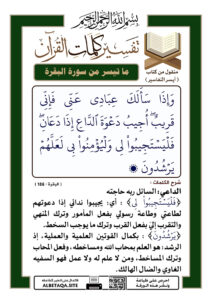 بسم الله الرحمن الرحيم
تفسير كلمات القرآن
منقول من كتاب
(أيسر التفاسير)
ما تيسر من سورة البقرة
وَإِذَا سَأَلَكَ عِبَادِي عَنِّي فَإِنِّي
قَرِيبٌ أُجِيبُ دَعْوَةَ الدَّاعِ إِذَا دَعَانِ
فَلْيَسْتَجِيبُوا لِي وَلْيُؤْمِنُوا بِي لَعَلَّهُمْ
يَرْشُدُونَ
شرح الكلمات: (البقرة : 186)
الداعي: السائل ربه حاجته
﴿فَلْيَسْتَجِيبُوا لِي﴾ : أي: يجيبوا ندائي إذا دعوتهم
لطاعتي وطاعة رسولي بفعل المأمور وترك المنهي
والتقرب إلي بفعل القرب وترك ما يوجب السخط.
﴿يَرْشُدُونَ﴾ : بكمال القوتين العلمية والعملية، إذ
الرشد: هو العلم بمحاب الله ومساخطه، وفعل المحاب
وترك المساخط، ومن لا علم له ولا عمل فهو السفيه
الغاوي والضال الهالك.
ALBETAQA.SITE